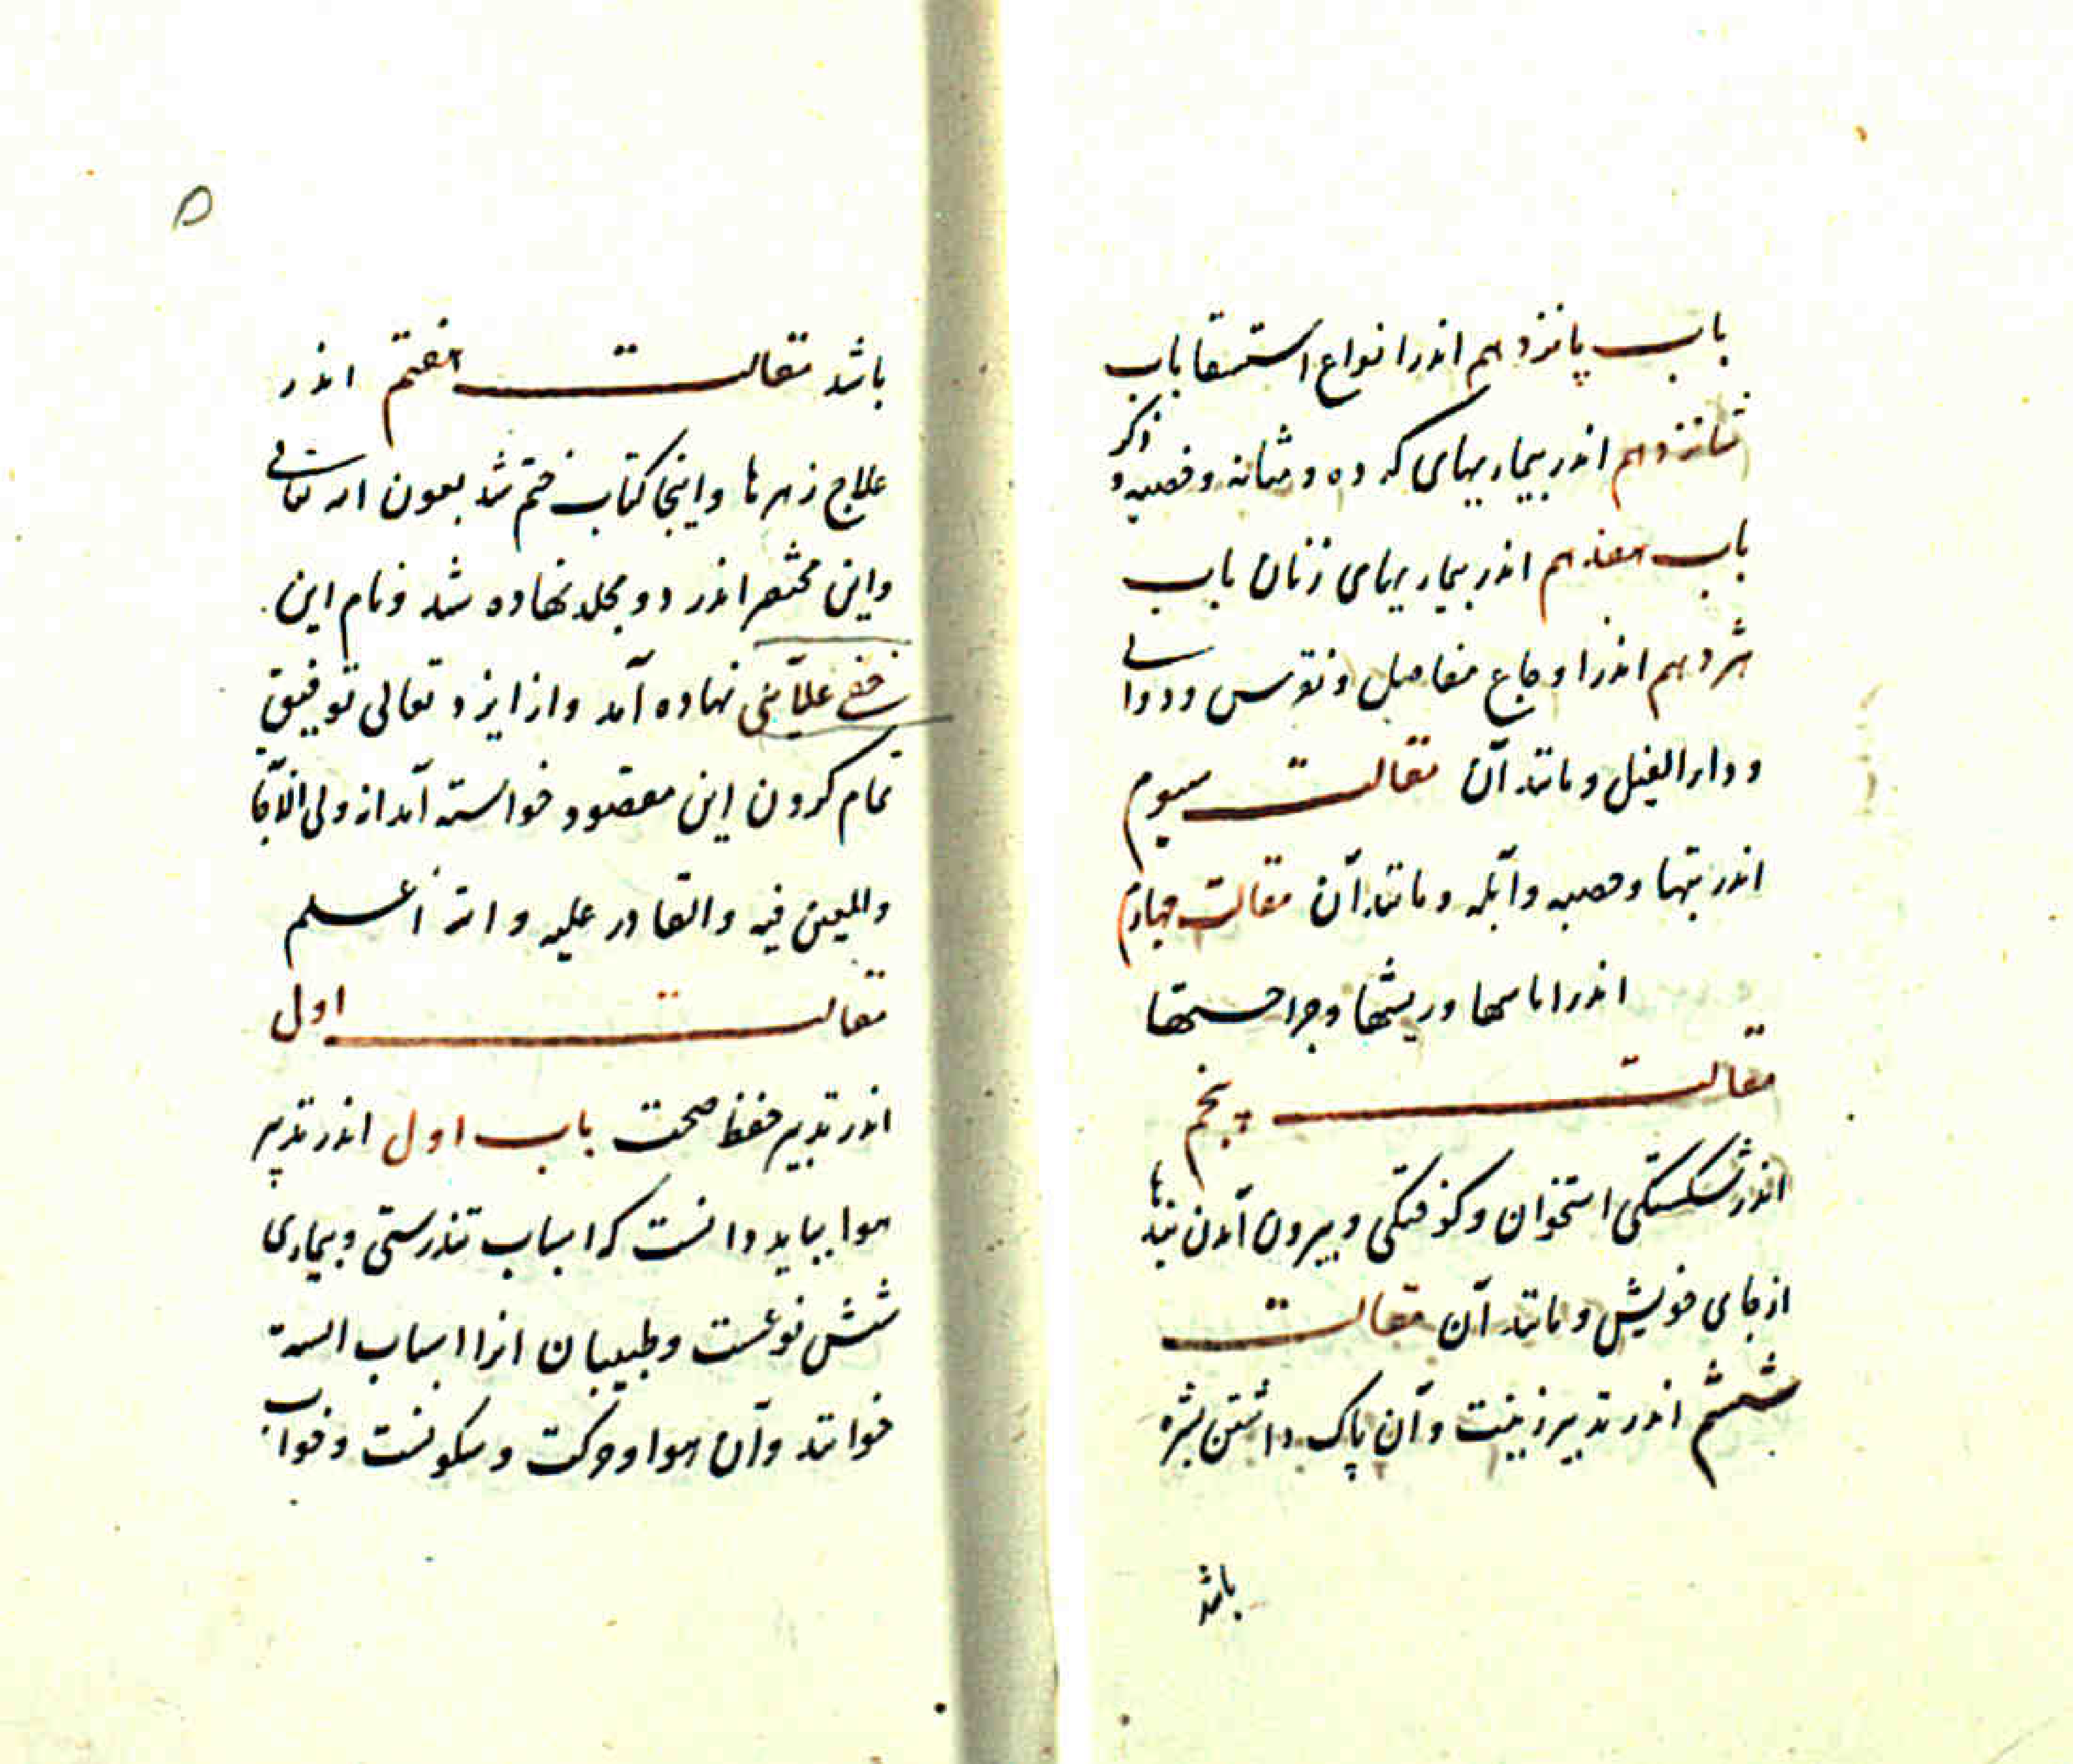 باب پانزدهم اندر انواع استسقا باب
شانزدهم اندر بیماریهای کرده و مثانه و قصیب و ذکر
باب هفدهم اندر بیماریهای زنان باب
هژدهم اندر اوجاع مفاصل و نقرس و دوالی
و داء الفیل و مانند آن مقالت سیوم
اندر تبها و حصبه و آبله و مانند آن مقالت چهارم
اندر اماسها و ریشها و جراحتها
مقالت پنجم
اندر شکستگی استخوان و کوفتگی و بیرون آمدن بندها
از جای خویش و مانند آن مقالت
ششم اندر تدبیر زینت و آن پاک داشتن بشره
باشد
۵
باشد مقالت هفتم اندر
علاج زهرها و اینجا کتاب ختم شد بعون الله تعالی
و این مختصر اندر دو مجلد نهاده شد و نام این
خفی علائی نهاده آمد و از ایزد تعالی توفیق
تمام کردن این مقصود خواسته آمد انه ولی
والمعین فیه والقادر علیه والله اعلم
مقالت اول
اندر تدبیر حفظ صحت باب اول اندر تدبیر
هوا بباید دانست که اسباب تندرستی و بیماری
شش نوعست و طبیبان انرا اسباب السته
خوانند و آن هوا و حرکت و سکونست و خواب